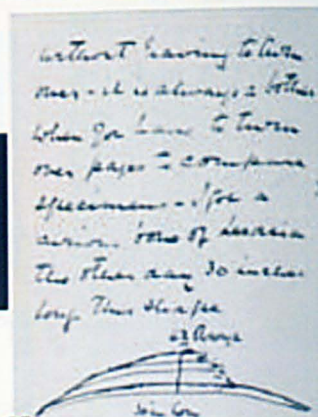 without having to turn
over - it is always a bother
when you have to turn
over pages to compare
specimens - I for a
curious bone of
the other day 30 inches
long This shape